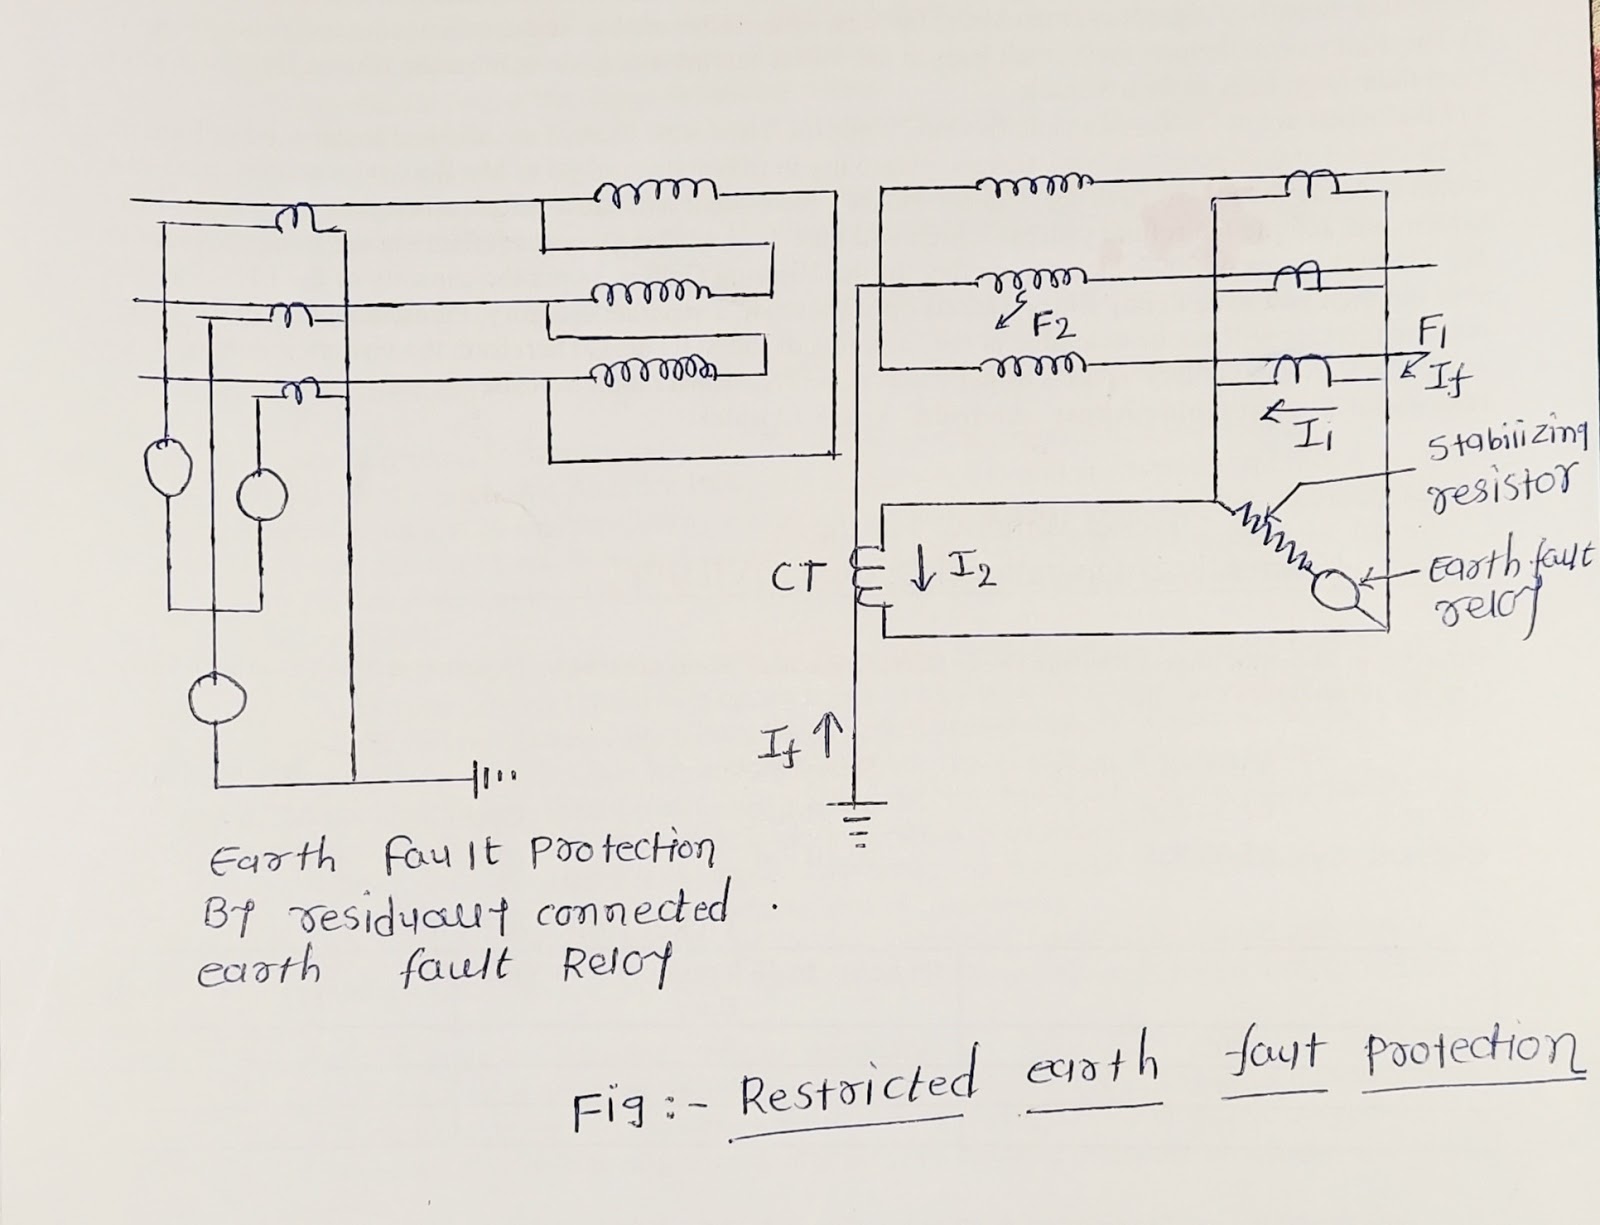 F2
F1
If
I1
Stabilizing
resistor
CT
I2
Earth fault
reloy
If
Earth fault protection
By residually connected
earth fault Reloy
Fig :- Restricted earth fault protection